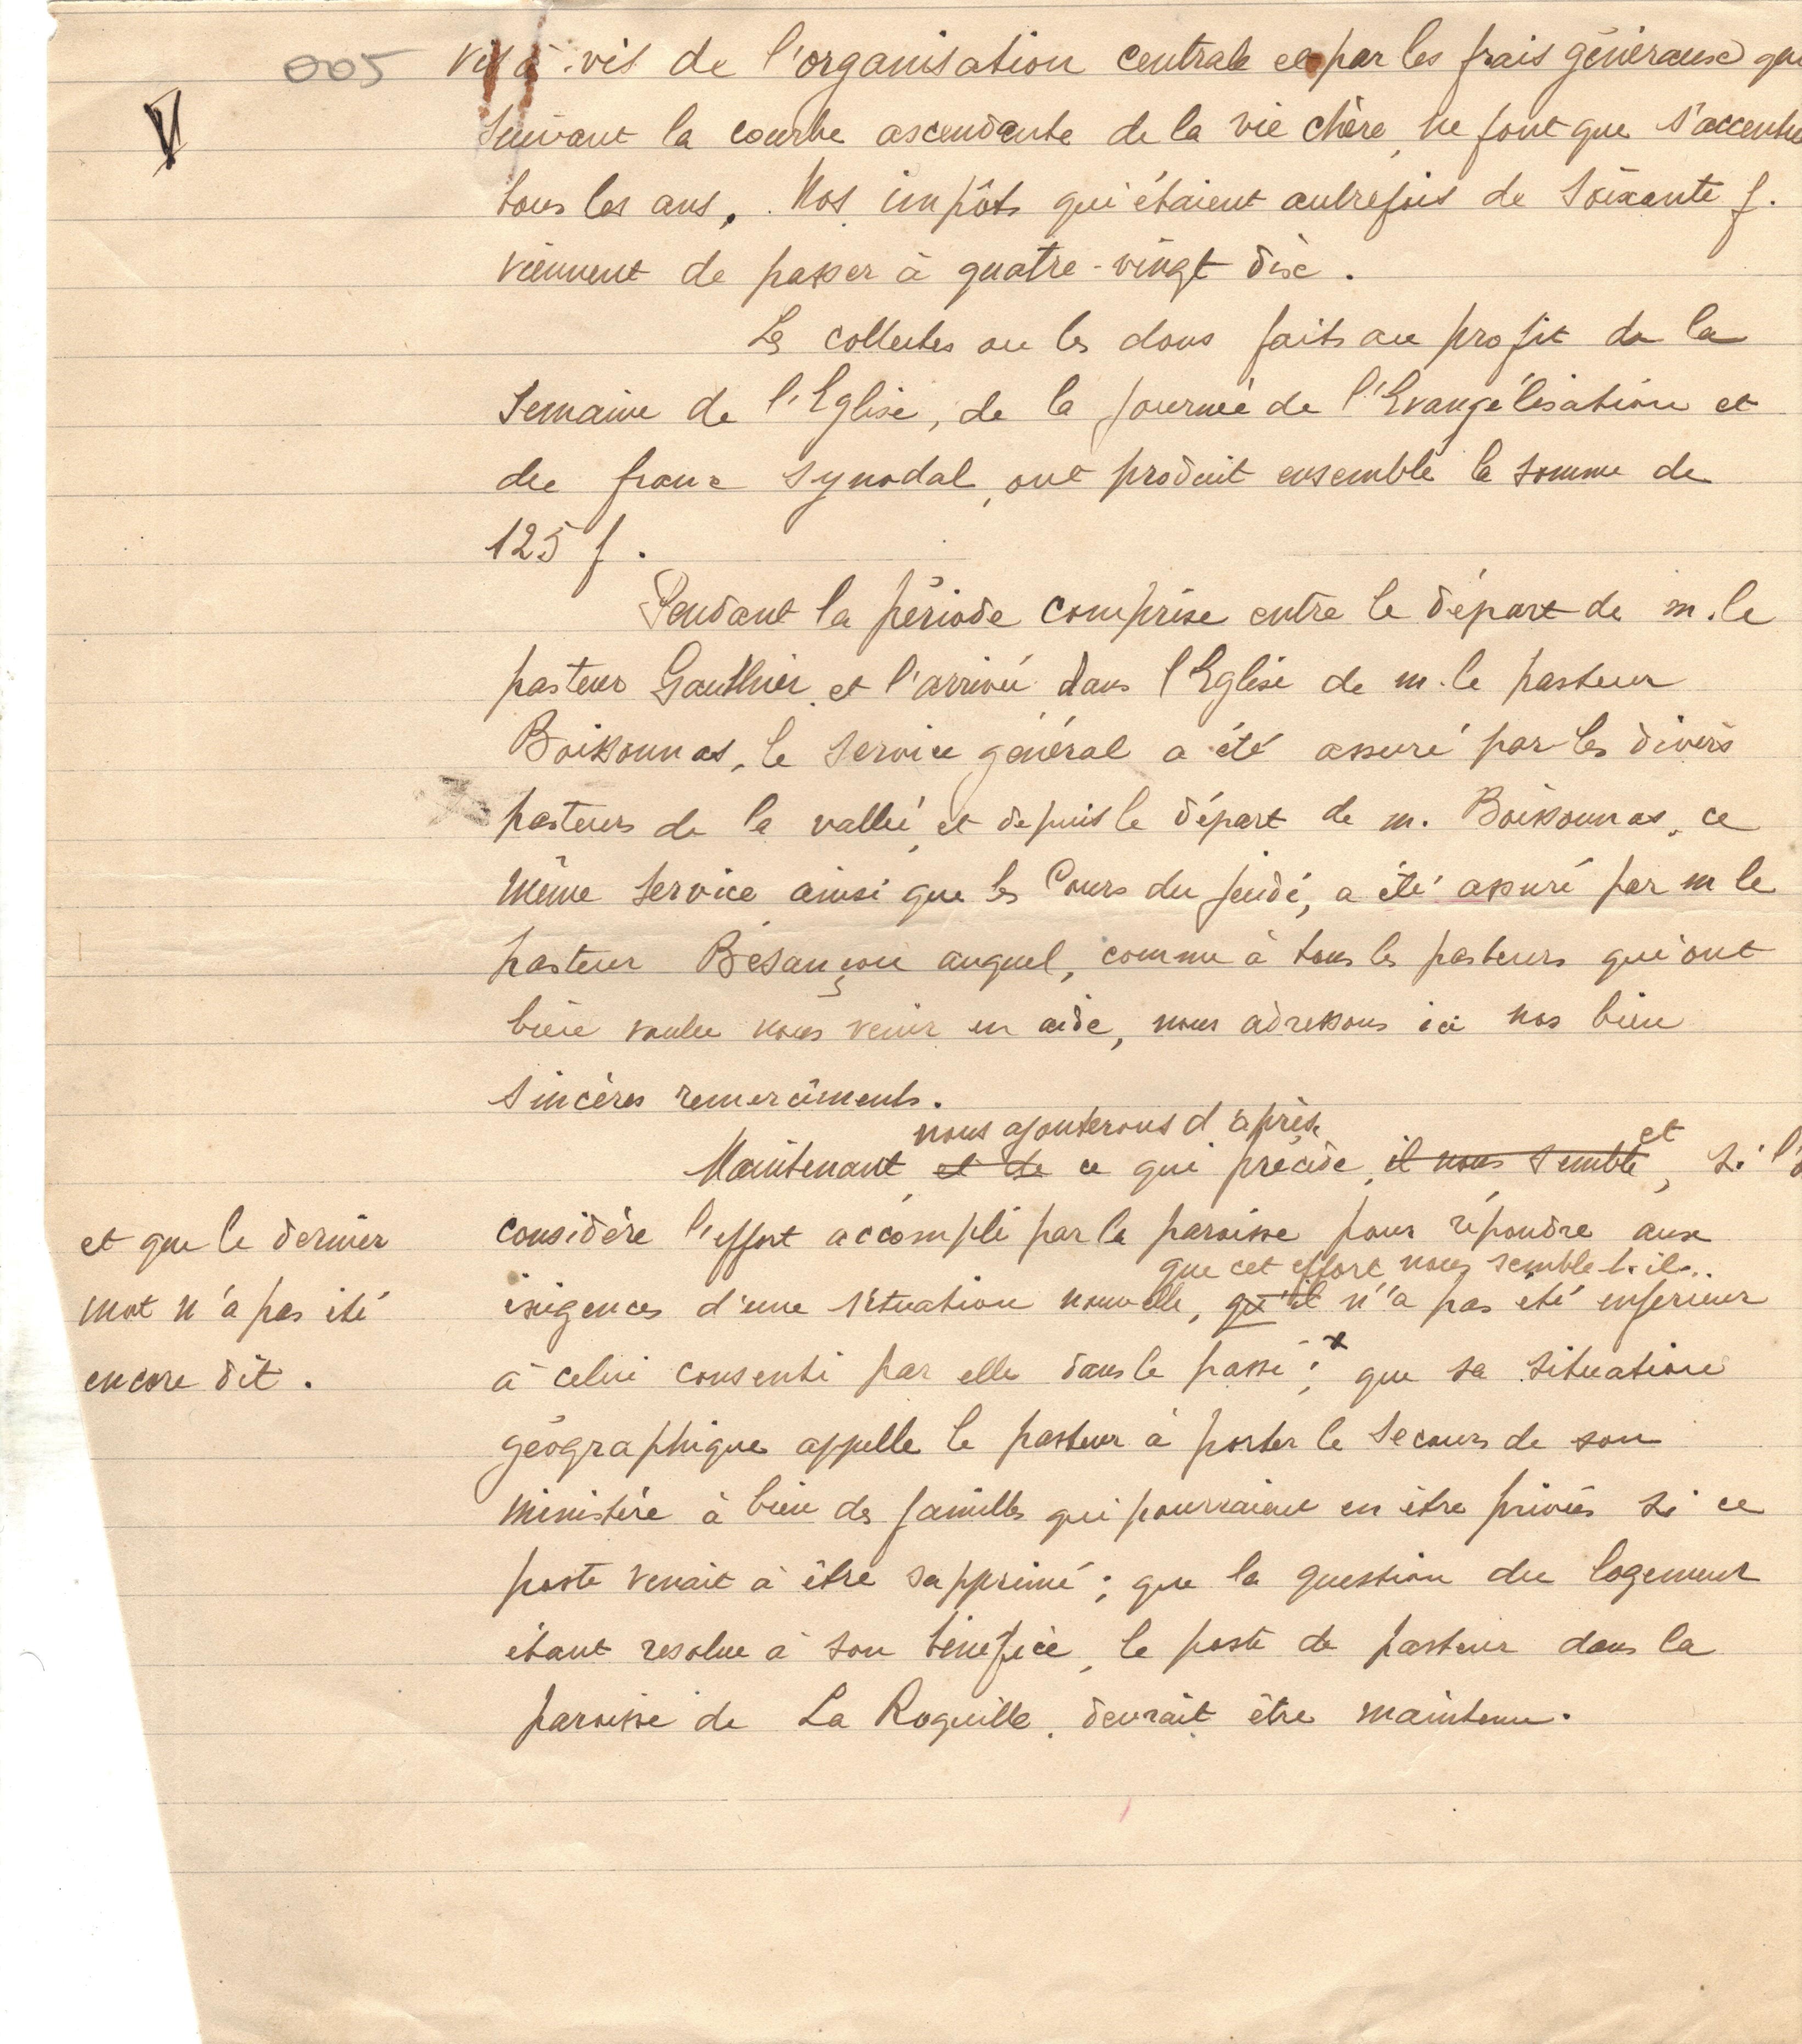 005
V
vis à vis de l'organisation centrale et par les frais généraux qui
suivant la courbe ascendante de la vie chère, ne font que s'accentue
tous les ans. Nos impôts qui étaient autrefois de soixante f.
viennent de passer à quatre-vingt dix.
Les collectes ou les dons faits au profit de la
Semaine de l'Eglise, de la journée de l'Evangélisation et
du franc synodal, ont produit ensemble la somme de
125 f.
Pendant la période comprise entre le départ de m. le
pasteur Gauthier et l'arrivée dans l'Eglise de m. le pasteur
Boissonnas, le service général a été assuré par les divers
pasteurs de la vallée, et depuis le départ de m. Boissonnas, ce
même service ainsi que les Cours du jeudi, a été assuré par m le
pasteur Bésançon auquel, comme à tous les pasteurs qui ont
bien voulu nous venir en aide, nous adressons ici nos bien
sincères remerciments.
nous ajouterons d'après
Maintenant et de ce qui précède, il nous semble et, si l'o
considère l'effort accompli par la paroisse pour répondre aux
que cet effort nous semble-t-il..
exigences d'une situation nouvelle, qu'il n'a pas été inférieur
à celui consenti par elle dans le passé ; x que sa situation
géographique appelle le pasteur à porter le secours de son
ministère à bien des familles qui pourraient en être privées si ce
poste venait à être supprimé ; que la question du logement
étant résolue à son bénéfice, le poste de pasteur dans la
paroisse de La Roquille, devrait être maintenu.
et que le dernier
mot n'a pas été
encore dit.